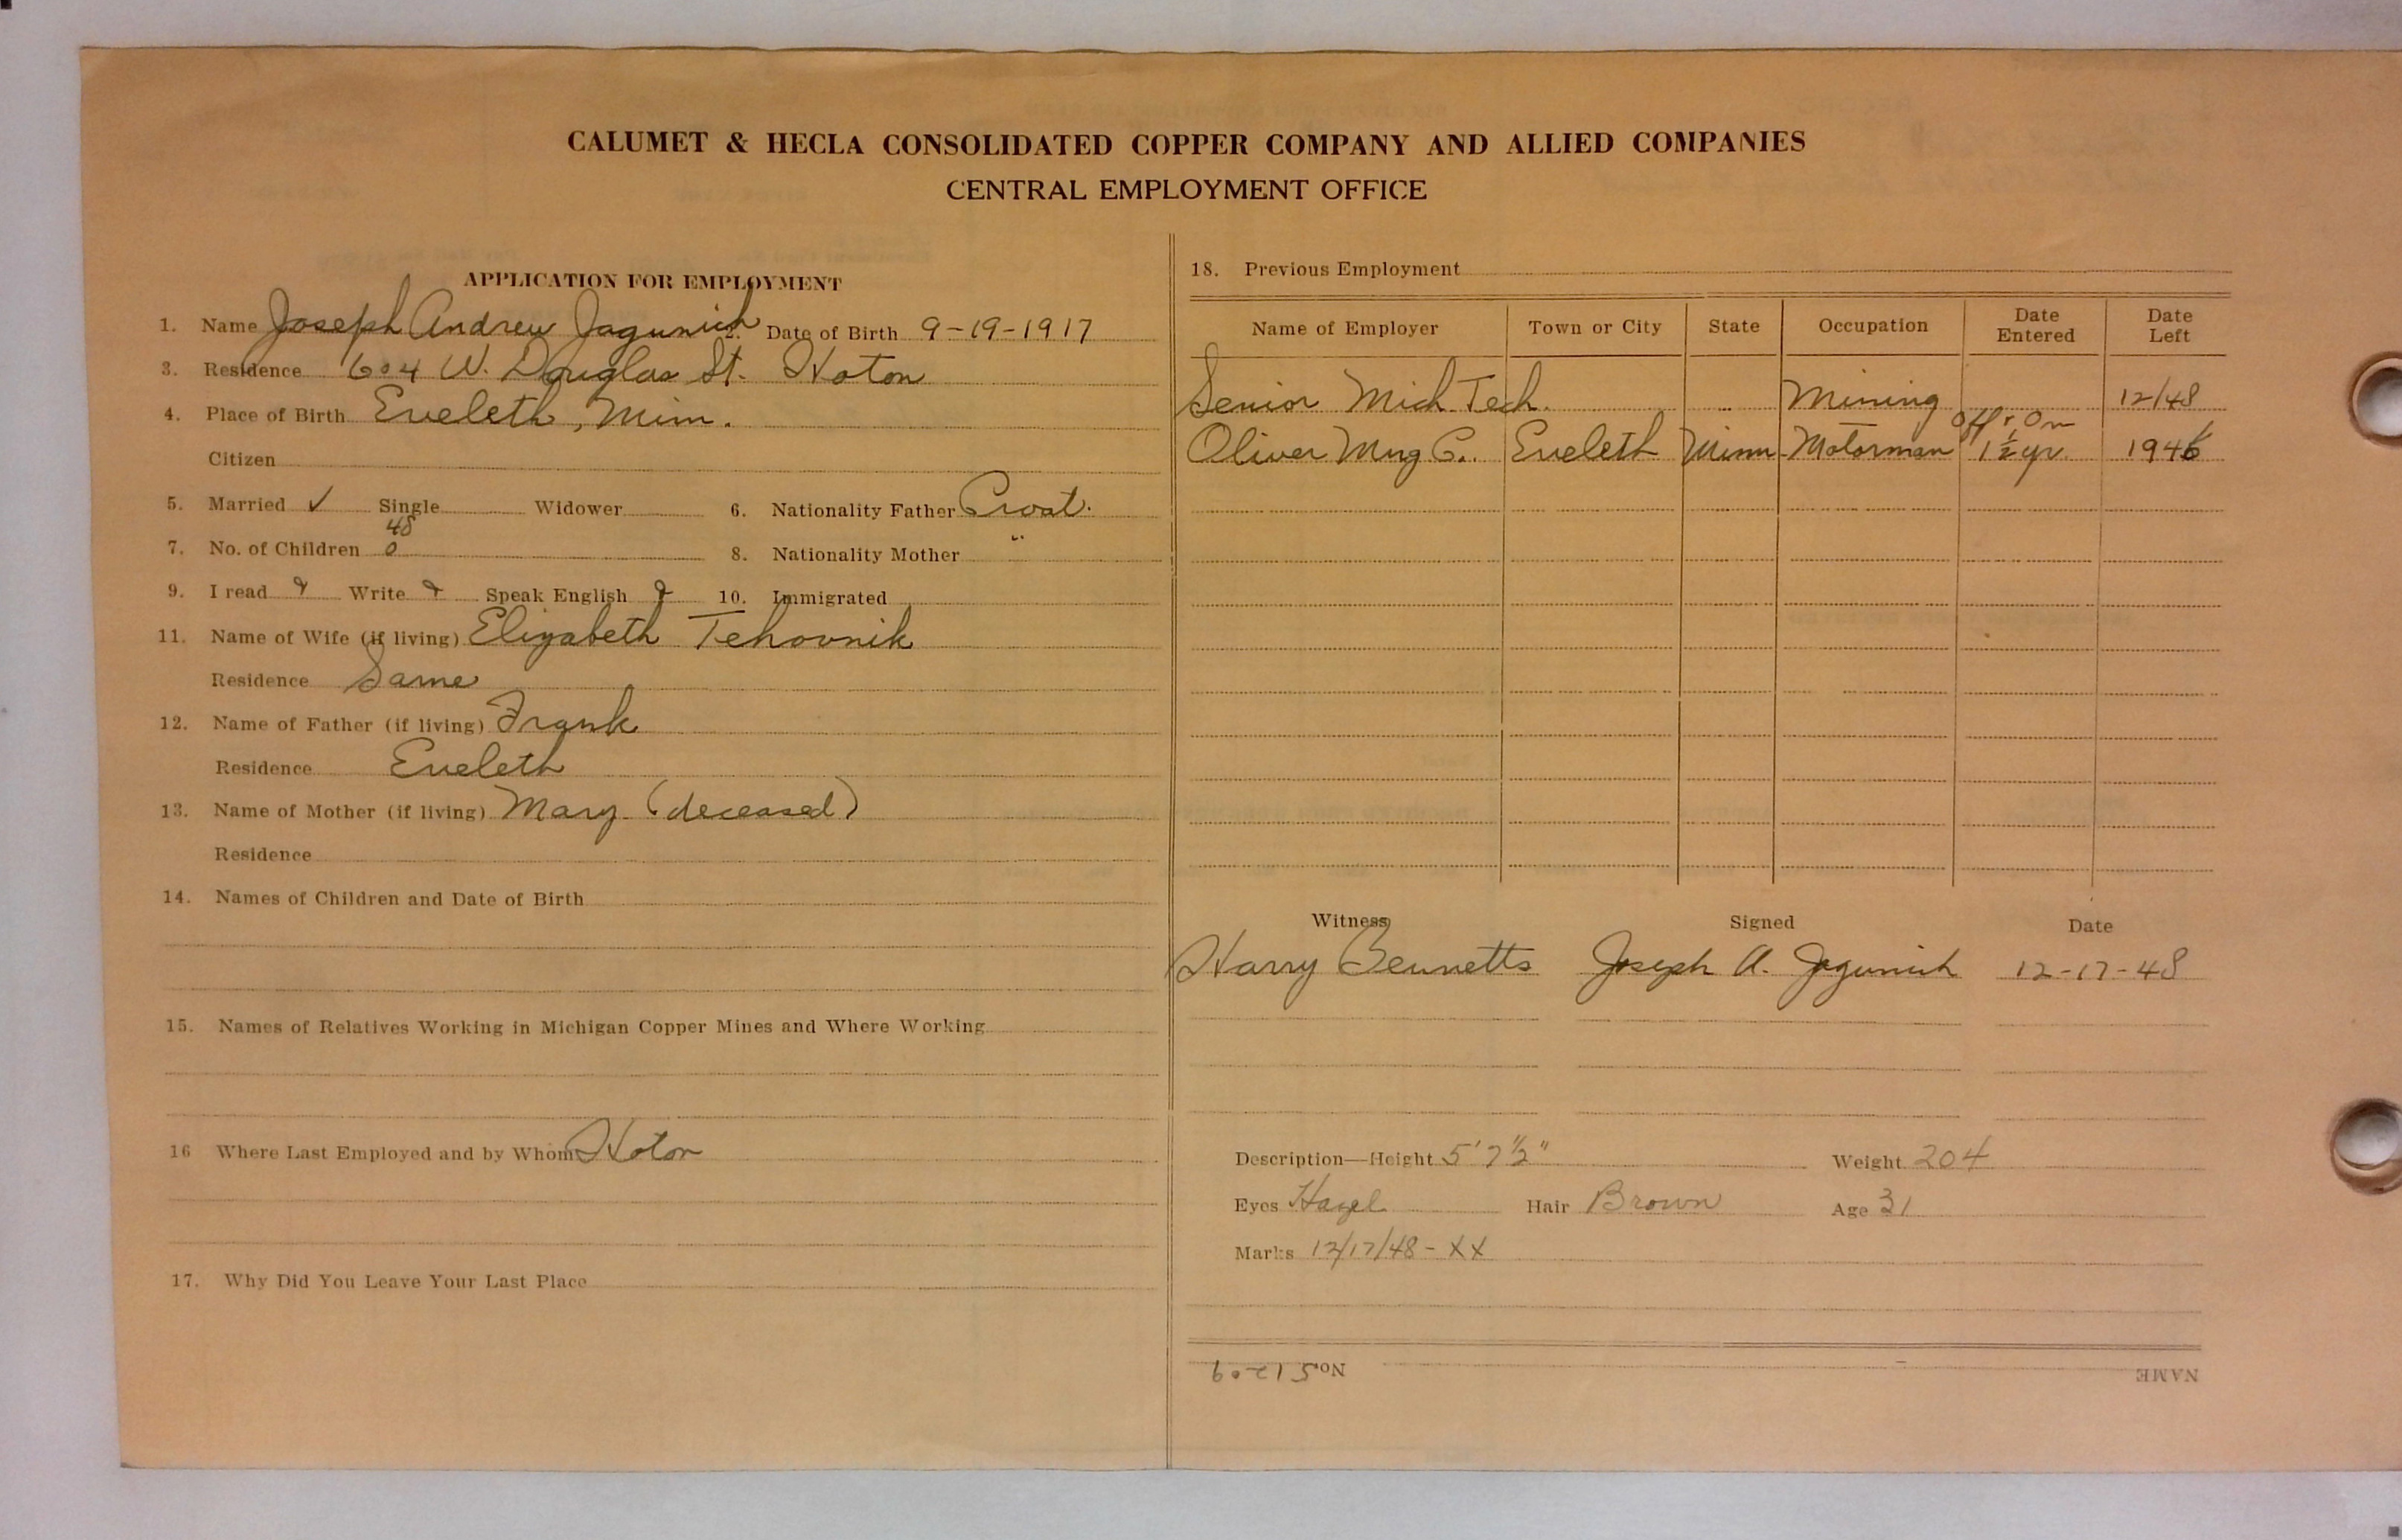 CALUMET & HECLA CONSOLIDATED COPPER COMPANY AND ALLIED COMPANIES
CENTRAL EMPLOYMENT OFFICE
APPLICATION FOR EMPLOYMENT
1. Name Joseph Andrew Jagunich 2. Date of Birth 9-19-1917
3. Residence 604 W. Douglas St. Hoton
4. Place of Birth Eveleth, Minn.
Citizen
5. Married ✓ Single Widower 6. Nationality Father Croat.
48
7. No. of Children 0 8. Nationality Mother "
9. I read Write Speak English 10. Immigrated
11. Name of Wife (if living) Elizabeth Tehovnik
Residence Same
12. Name of Father (if living) Frank
Residence Eveleth
13. Name of Mother (if living) Mary (deceased)
Residence
14. Names of Children and Date of Birth
15. Names of Relatives Working in Michigan Copper Mines and Where Working
16 Where Last Employed and by Whom Hoton
17. Why Did You Leave Your Last Place
18. Previous Employment
Name of Employer Town or City State Occupation Date Entered Date Left
Senior Mich Tech. Mining 12/48
Off & On
Oliver Mng C. Eveleth Minn Motorman 1½ yr. 1946
Witness Signed Date
Harry Bennetts Joseph A. Jagunich 12-17-48
Description—Height 5' 7½" Weight 204
Eyes Hazel Hair Brown Age 31
Marks 12/17/48 - XX
NAME No. 51209